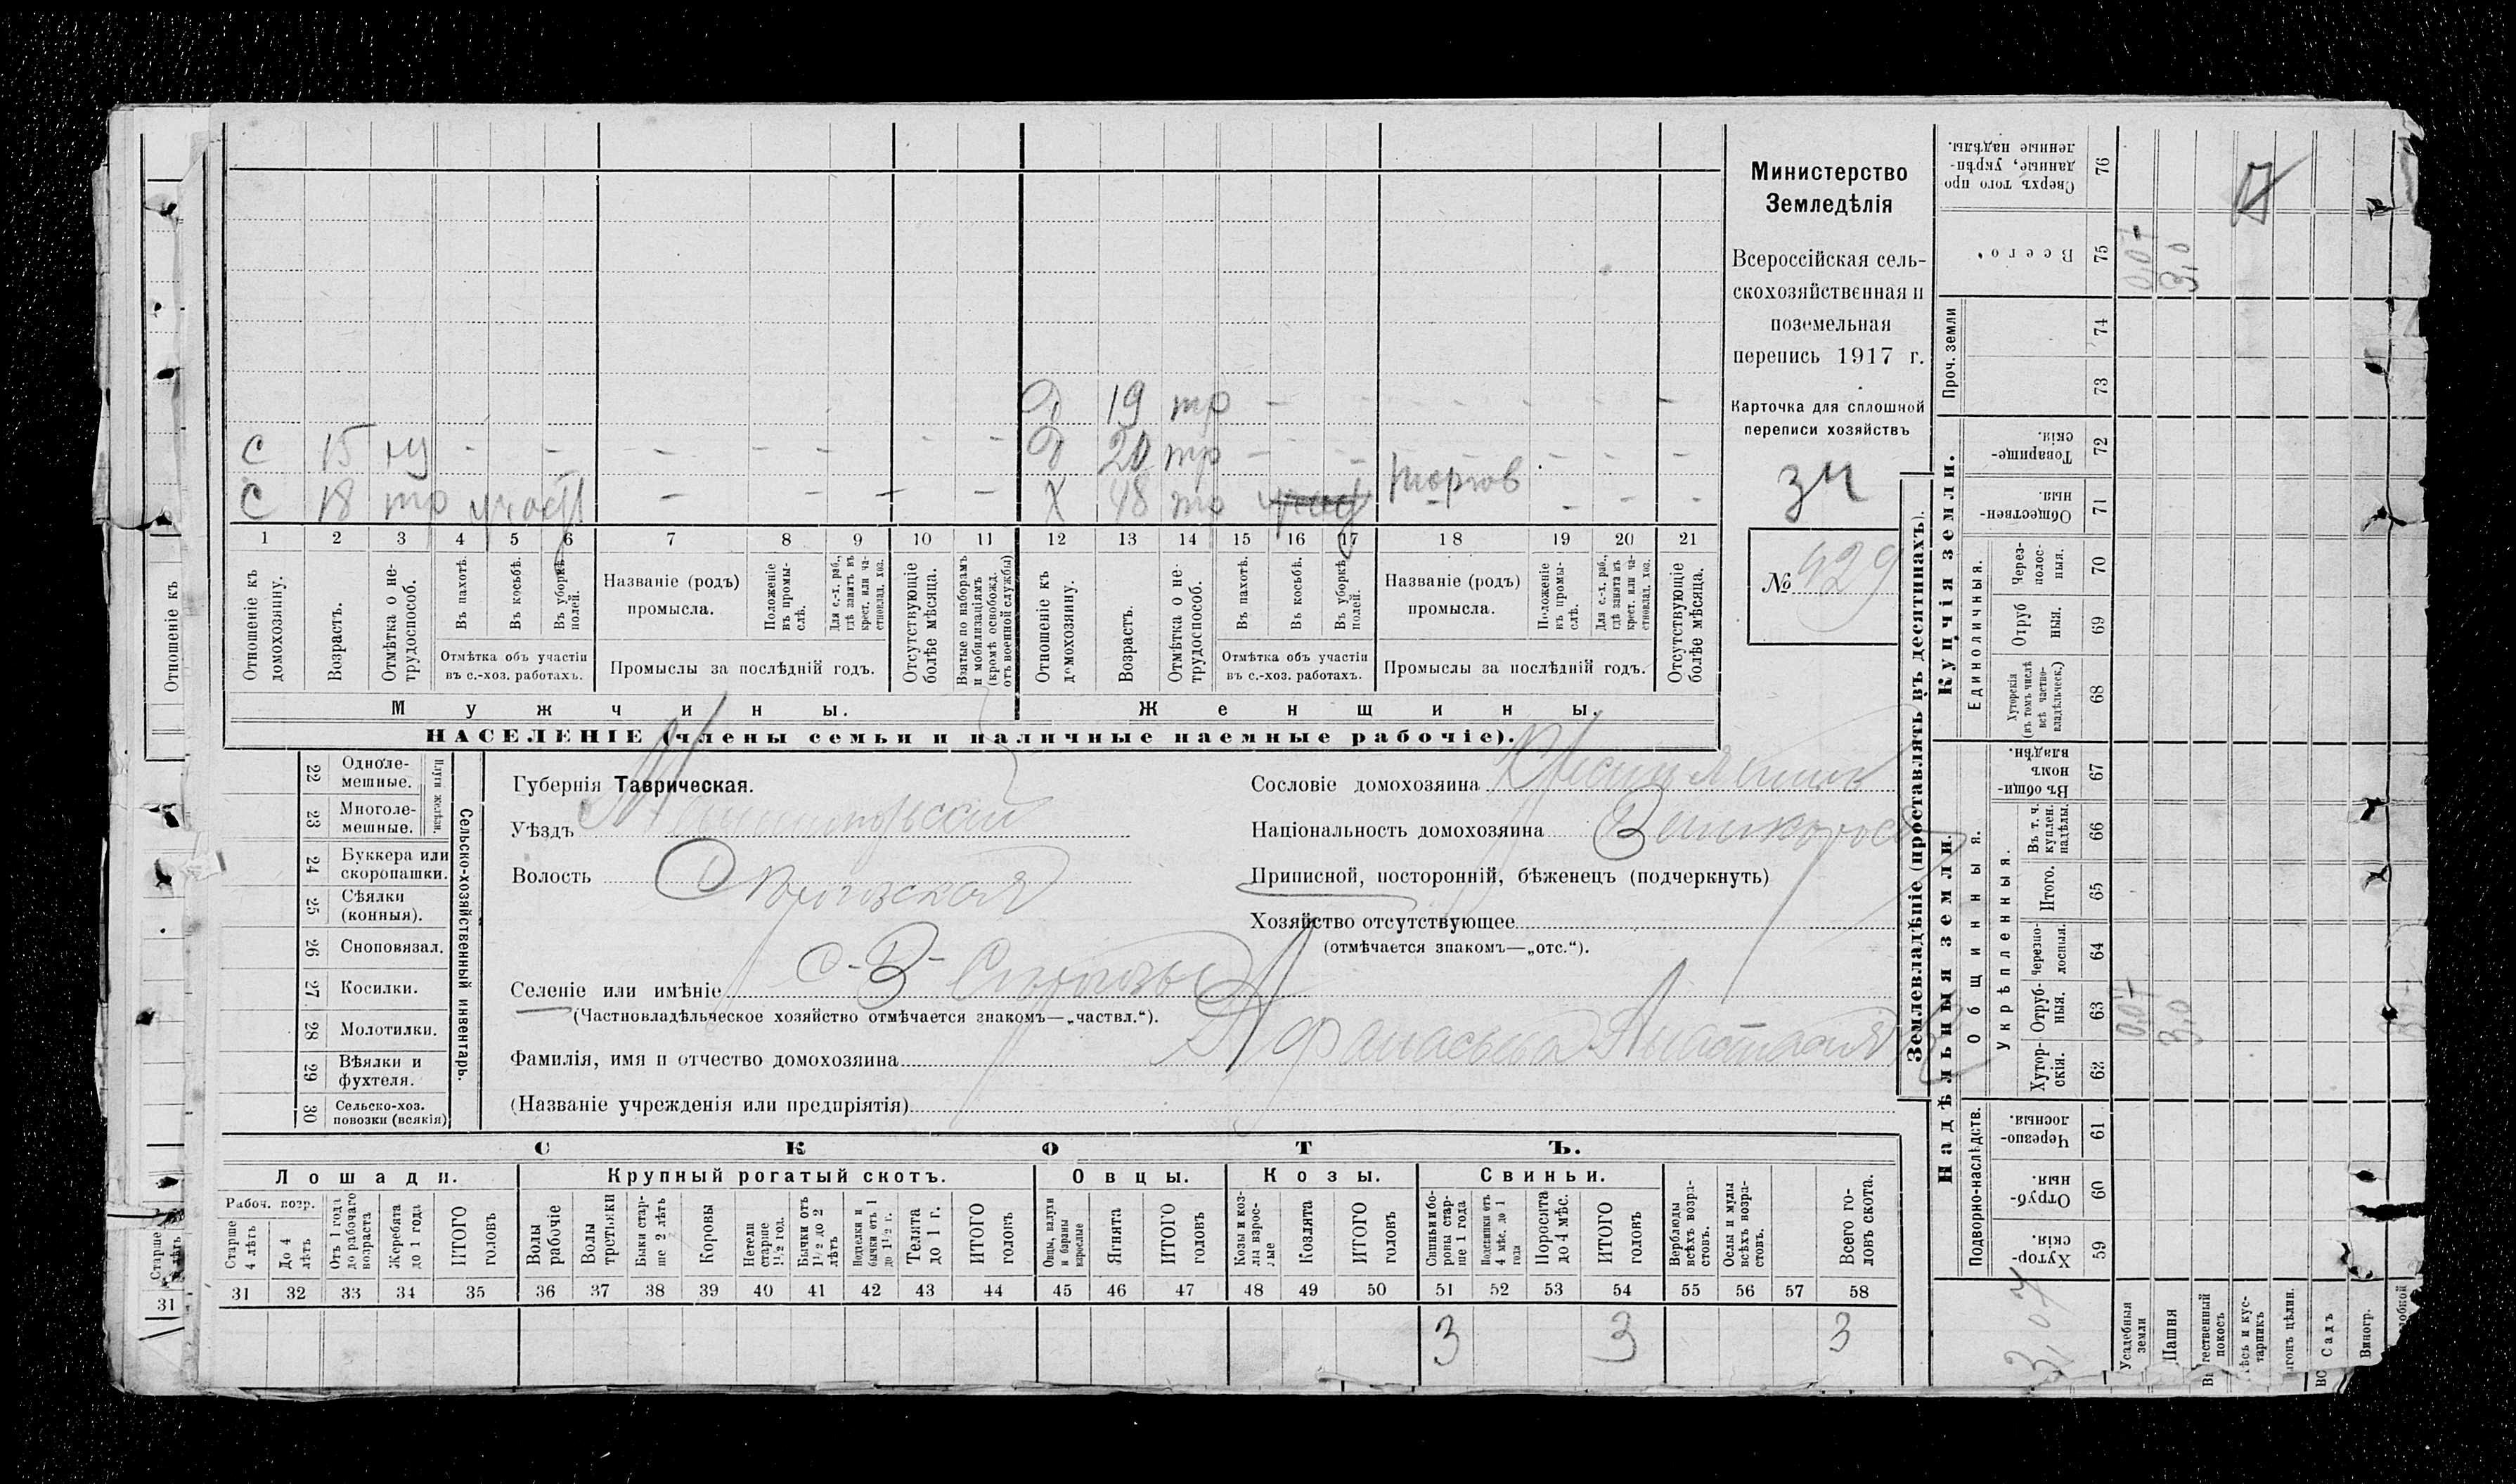 Министерство
Земледѣлія
Всероссійская сель-
скохозяйственная и
поземельная
перепись 1917 г.
Карточка для сплошной
переписи хозяйствъ
№ 429
Д 19 тр - - - - - -
С 15 - - - - - - - Д 20 тр - - - - - - -
С 18 тр участ - - - - Х 48 тр торгов - - -
1 2 3 4 5 6 7 8 9 10 11 12 13 14 15 16 17 18 19 20 21
Отношеніе къ домохозяину.
Возрастъ.
Отмѣтка о не-трудоспособ.
Въ пахотѣ.
Въ косьбѣ.
Въ уборкѣ полей.
Отмѣтка объ участіи
въ с.-хоз. работахъ.
Названіе (родъ)
промысла.
Положеніе въ промы-слѣ.
Для с.-х. раб., гдѣ занятъ въ крест. или ча-стновлад. хоз.
Промыслы за послѣдній годъ.
Отсутствующіе болѣе мѣсяца.
Взятые по наборамъ и мобилизаціямъ (кромѣ освобожд. отъ военной службы)
Отношеніе къ домохозяину.
Возрастъ.
Отмѣтка о не-трудоспособ.
Въ пахотѣ.
Въ косьбѣ.
Въ уборкѣ полей.
Отмѣтка объ участіи
въ с.-хоз. работахъ.
Названіе (родъ)
промысла.
Положеніе въ промы-слѣ.
Для с.-х. раб., гдѣ занята въ крест. или ча-стновлад. хоз.
Промыслы за послѣдній годъ.
Отсутствующіе болѣе мѣсяца.
Мужчины.
Женщины.
НАСЕЛЕНІЕ (члены семьи и наличные наемные рабочіе).
22 Одноле-мешные.
23 Многоле-мешные.
Плуги желѣзн.
24 Буккера или скоропашки.
25 Сѣялки (конныя).
26 Сноповязал.
27 Косилки.
28 Молотилки.
29 Вѣялки и фухтеля.
30 Сельско-хоз. повозки (всякія)
Сельско-хозяйственный инвентарь.
Губернія Таврическая.
Уѣздъ Мелитопольскій
Волость
Селеніе или имѣніе С-В-
(Частновладѣльческое хозяйство отмѣчается знакомъ—„частвл.“).
Фамилія, имя и отчество домохозяина Анастасия
(Названіе учрежденія или предпріятія)
Сословіе домохозяина
Національность домохозяина Великоросс
Приписной, посторонній, бѣженецъ (подчеркнуть)
Хозяйство отсутствующее
(отмѣчается знакомъ—„отс.“).
СКОТЪ.
Лошади.
Рабоч. возр.
Старше 4 лѣтъ
До 4 лѣтъ
Отъ 1 года до рабочаго возраста
Жеребята до 1 года
ИТОГО головъ
Крупный рогатый скотъ.
Волы рабочіе
Волы третьяки
Быки стар-ше 2 лѣтъ
Коровы
Нетели старше 1½ год.
Бычки отъ 1½ до 2 лѣтъ
Телята до 1 г.
ИТОГО головъ
Овцы.
Овцы, валухи и бараны взрослые
Ягнята
ИТОГО головъ
Козы.
Козы и коз-лы взрос-лые
Козлята
ИТОГО головъ
Свиньи.
Свиньи и бо-ровы стар-ше 1 года
Подсвинки отъ 4 мѣс. до 1 года
Поросята до 4 мѣс.
ИТОГО головъ
Верблюды всѣхъ возра-стовъ.
Ослы и мулы всѣхъ возра-стовъ.
Всего го-ловъ скота.
31 32 33 34 35 36 37 38 39 40 41 42 43 44 45 46 47 48 49 50 51 52 53 54 55 56 57 58
3 3 3
Землевладѣніе (проставлять въ десятинахъ).
Купчія земли.
Надѣльныя земли.
Сверхъ того про данные, укрѣп-ленные надѣлы. 76
Всего. 75 0,07 3,0
Проч. земли
74
73
Товарище-скія. 72
Обществен-ныя. 71
Единоличныя.
Через-полос-ныя. 70
Отруб ныя. 69
Хуторскія (въ томъ числѣ всѣ частно-владѣльческ.) 68
Общинныя.
Въ общи-номъ владѣн. 67
Укрѣпленныя.
Въ т. ч. куплен. надѣлы. 66
Итого. 65
Черезпо-лосныя. 64
Отруб-ныя. 63 0,07 3,0
Хутор-скія. 62
Подворно-наслѣдств.
Черезпо-лосныя. 61
Отруб-ныя. 60
Хутор-скія. 59
3,07
Усадебныя земли
Пашня
покосъ
Садъ
Виногр.
Отношеніе къ
31